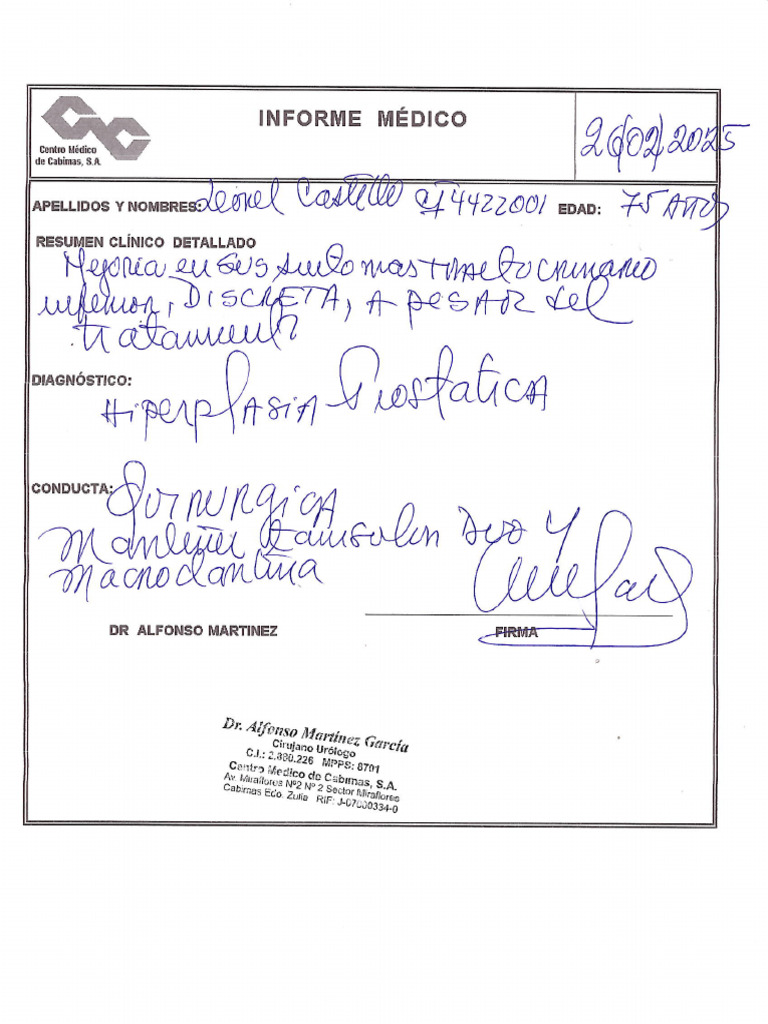 INFORME MÉDICO
Centro Médico
de Cabimas, S.A.
26/02/2025
APELLIDOS Y NOMBRES: Leonel Castillo CI 4422001 EDAD: 75 AÑOS
RESUMEN CLÍNICO DETALLADO
Mejoria en sus sintomas tracto urinario
inferior, DISCRETA, A pesAR del
tratamiento
DIAGNÓSTICO:
HiperplAsiA ProstaticA
CONDUCTA: QuirurgicA
Mantener Tamsulon Duo y
Macrodantina
DR ALFONSO MARTINEZ
FIRMA
Dr. Alfonso Martínez García
Cirujano Urólogo
C.I.: 2.880.226 MPPS: 8791
Centro Medico de Cabimas, S.A.
Av. Miraflores Nº2 Nº 2 Sector Miraflores
Cabimas Edo. Zulia RIF: J-07000334-0